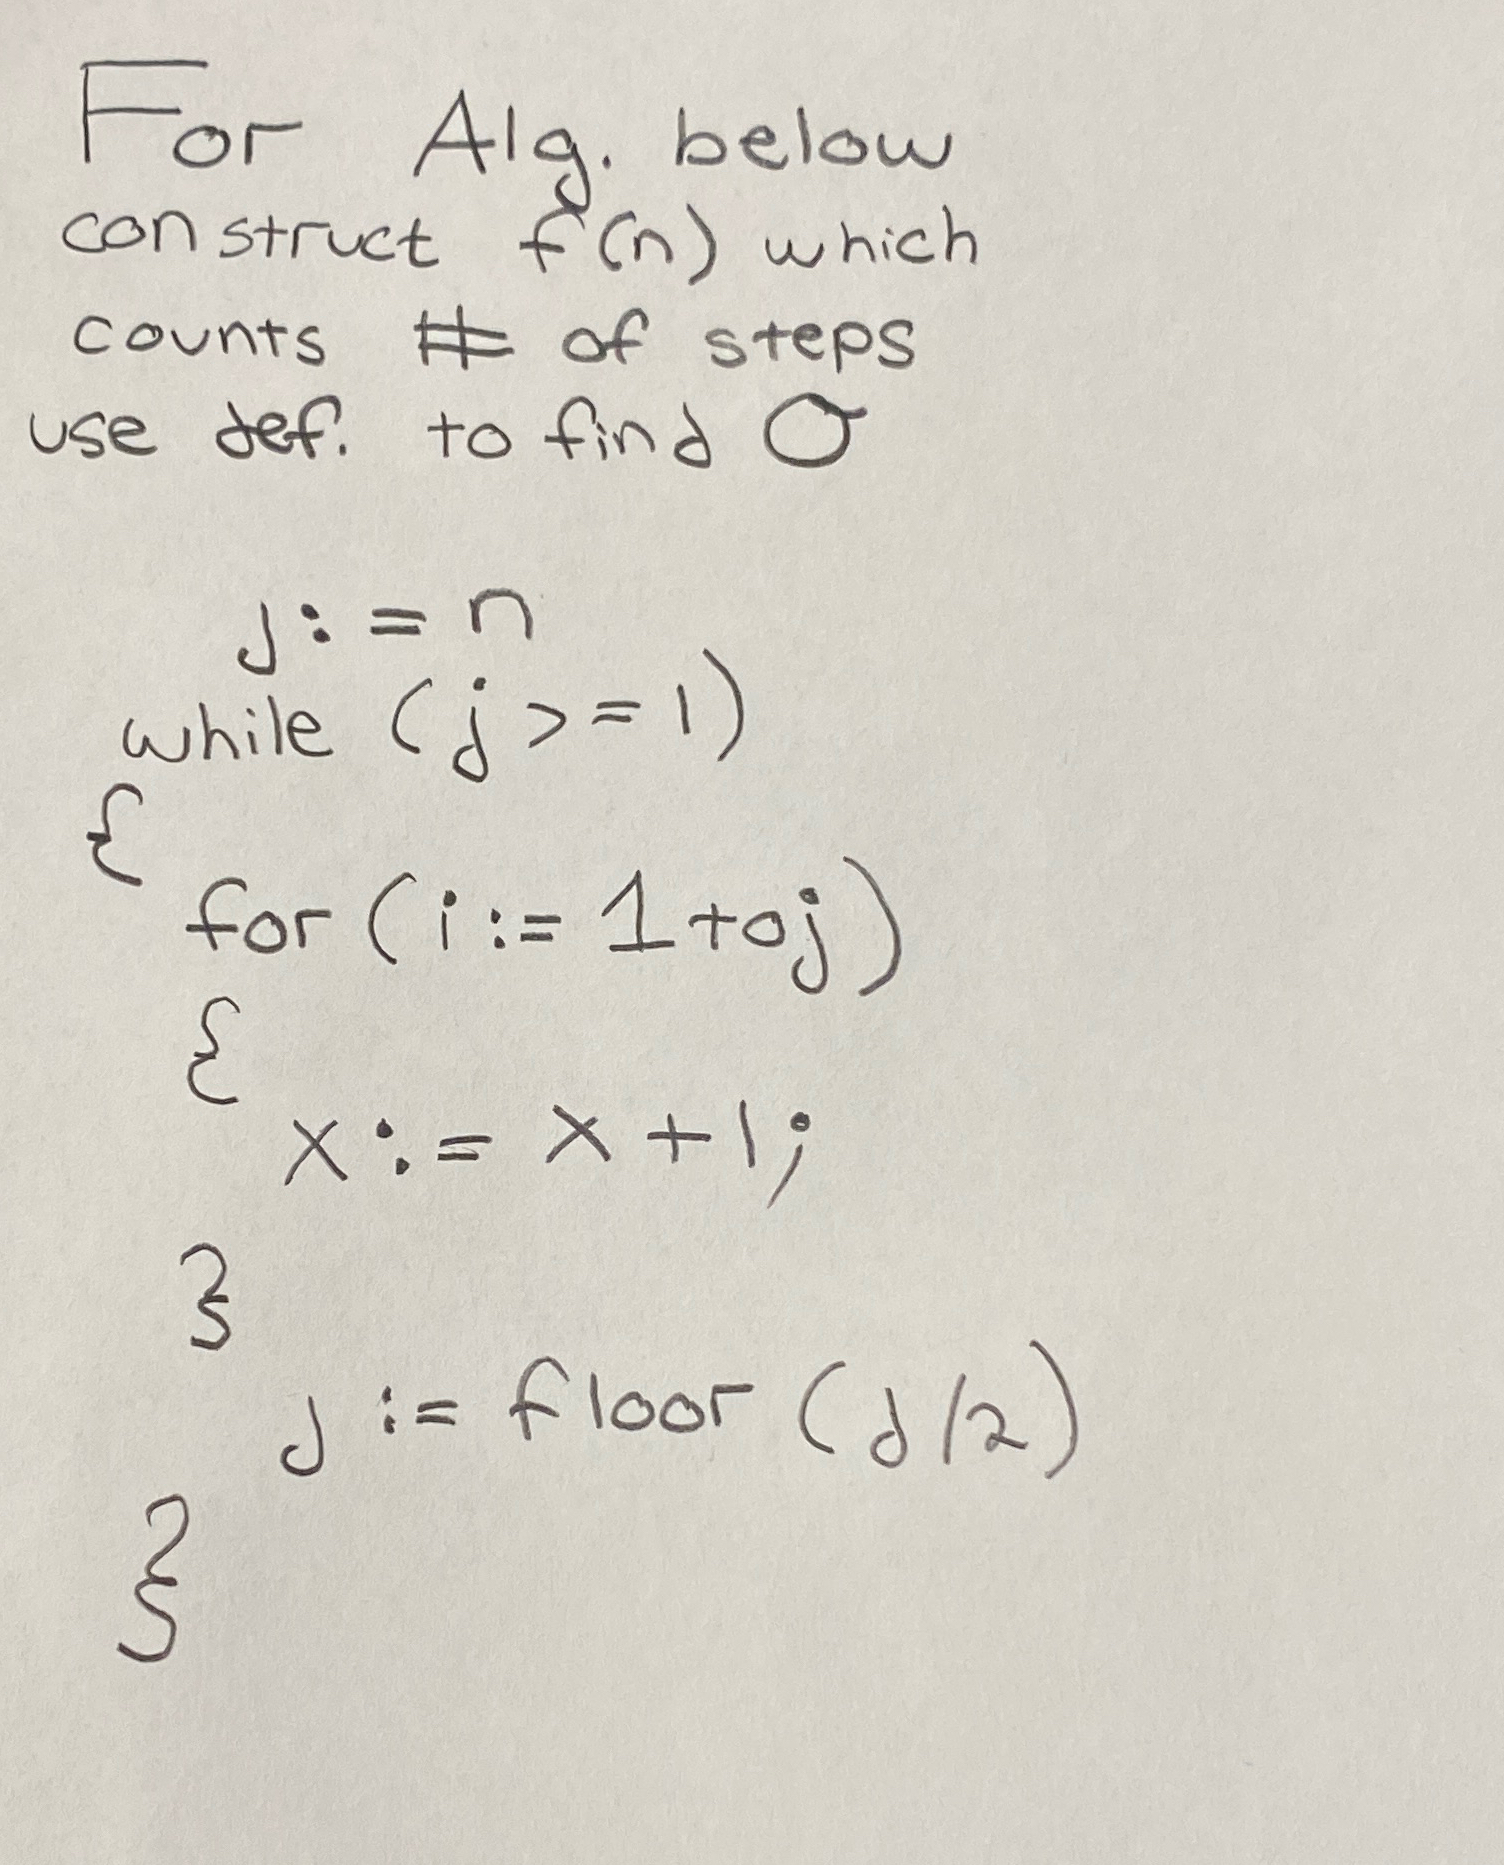 For Alg. below
construct f(n) which
counts # of steps
use def. to find O
j := n
while (j >= 1)
{
for (i := 1 to j)
{
x := x + 1;
}
j := floor (j/2)
}